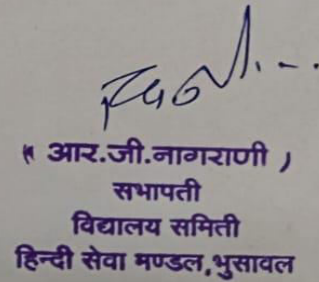 ( आर.जी.नागराणी )
सभापती
विद्यालय समिती
हिन्दी सेवा मण्डल,भुसावल